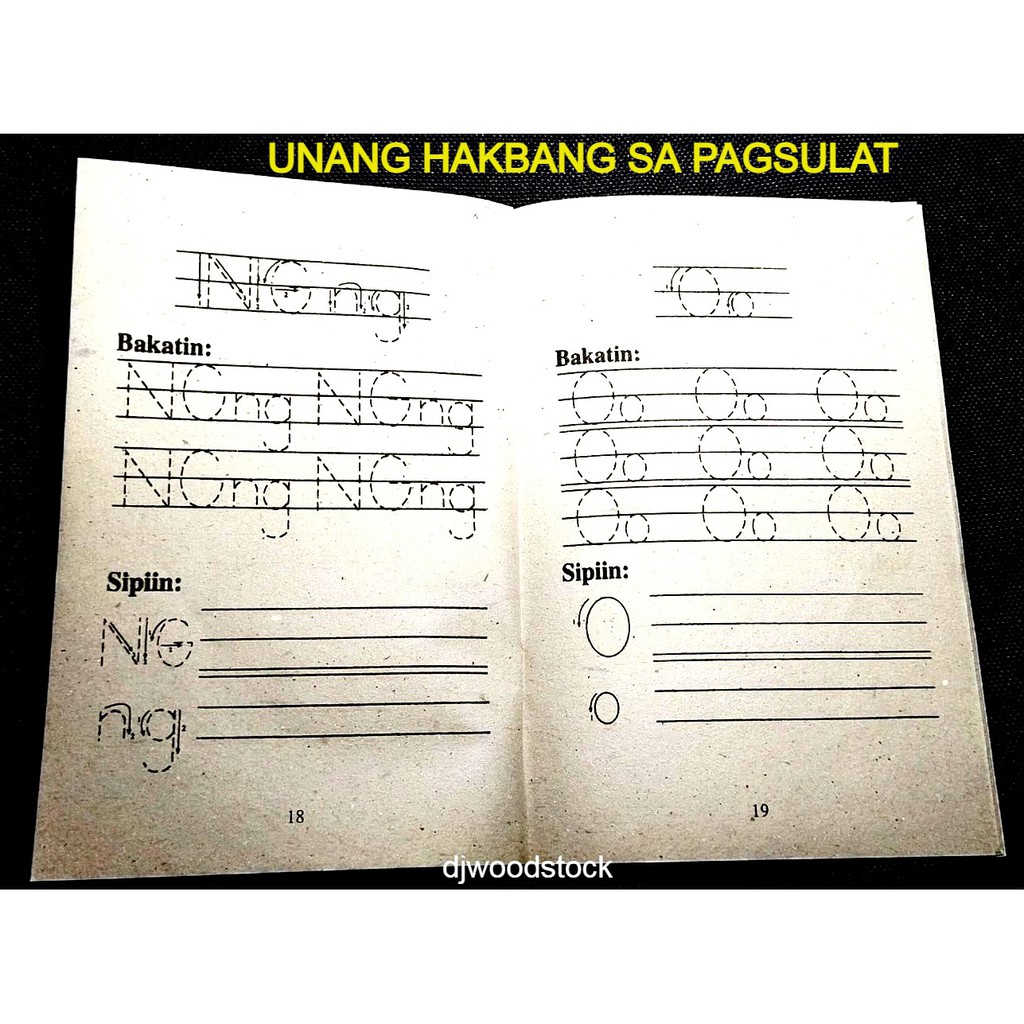 UNANG HAKBANG SA PAGSULAT
NG ng
Bakatin:
NG ng NG ng
NG ng NG ng
Sipiin:
NG
ng
18
O o
Bakatin:
O o O o O o
O o O o O o
O o O o O o
Sipiin:
O
o
19
djwoodstock